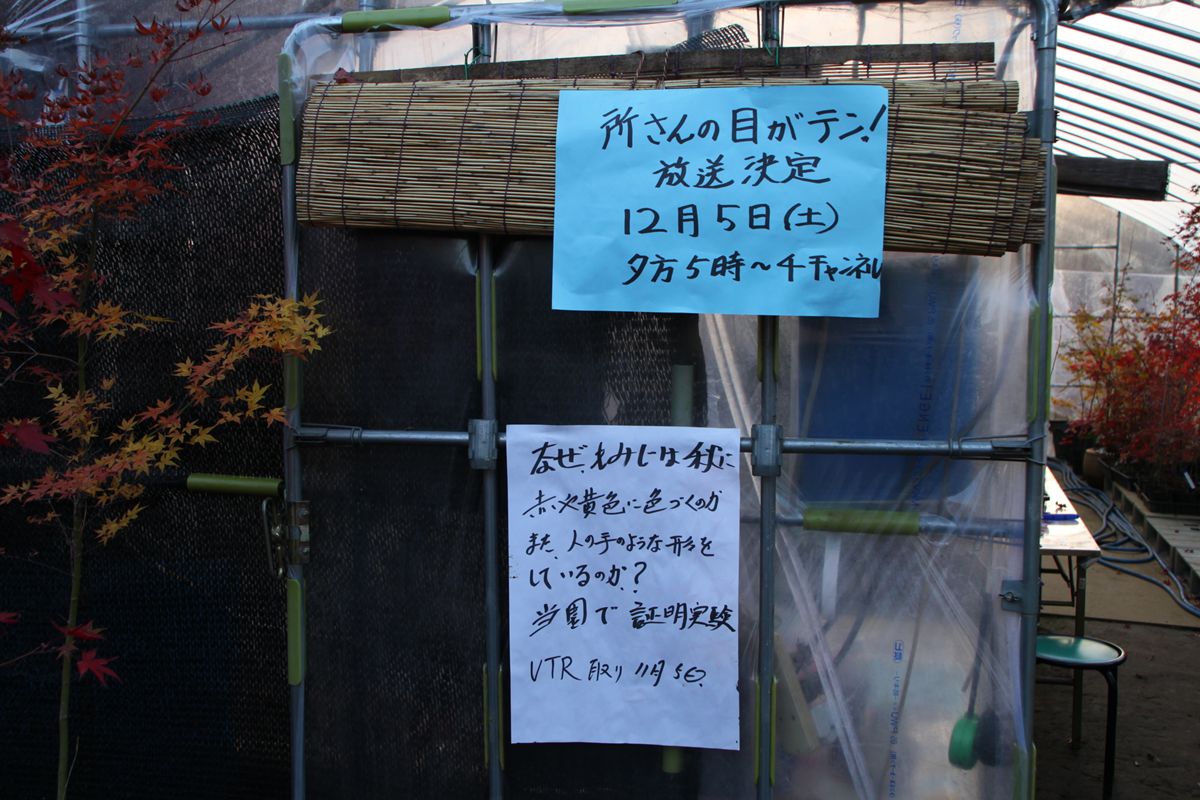 所さんの目がテン!
放送決定
12月5日(土)
夕方5時～4チャンネル
なぜ、もみじは秋に
赤や黄色に色づくのか
また、人の手のような形を
しているのか?
当園で証明実験
VTR取り11月5日